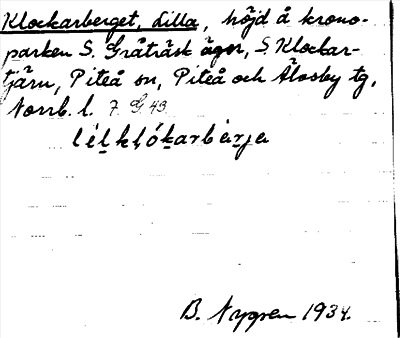 Klockarberget, Lilla, höjd å krono-
parken S. Gråträsk ägor, S Klockar-
tjärn, Piteå sn, Piteå och Älvsby tg,
Norrb. l. 7 G 43
B. Nygren 1934.